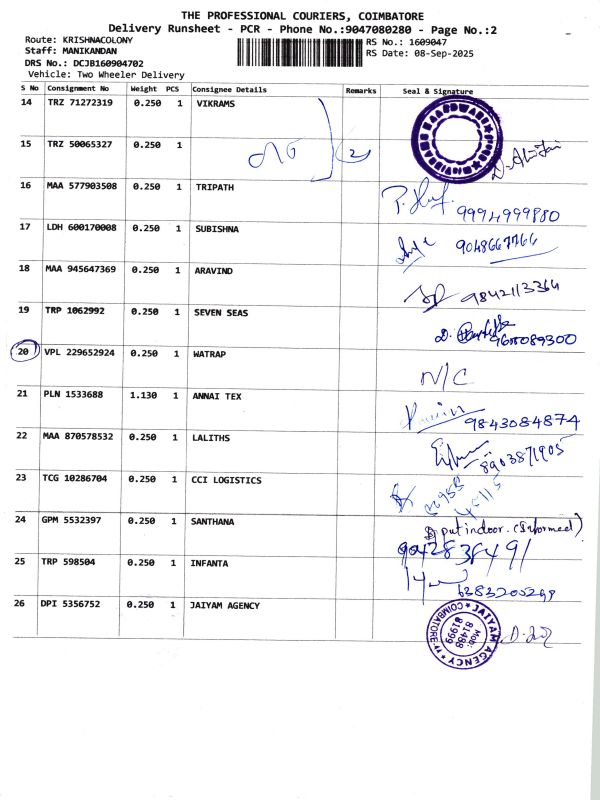 THE PROFESSIONAL COURIERS, COIMBATORE
Delivery Runsheet - PCR - Phone No.:9047080280 - Page No.:2
Route: KRISHNACOLONY
RS No.: 1609047
Staff: MANIKANDAN
RS Date: 08-Sep-2025
DRS No.: DCJB160904702
Vehicle: Two Wheeler Delivery
S No Consignment No Weight PCS Consignee Details Remarks Seal & Signature
14 TRZ 71272319 0.250 1 VIKRAMS
15 TRZ 50065327 0.250 1 2
16 MAA 577903508 0.250 1 TRIPATH 9994999880
17 LDH 600170008 0.250 1 SUBISHNA 9048667766
18 MAA 945647369 0.250 1 ARAVIND 9842113364
19 TRP 1062992 0.250 1 SEVEN SEAS 9600089300
20 VPL 229652924 0.250 1 WATRAP N/C
21 PLN 1533688 1.130 1 ANNAI TEX 9843084874
22 MAA 870578532 0.250 1 LALITHS 8903871905
23 TCG 10286704 0.250 1 CCI LOGISTICS
24 GPM 5532397 0.250 1 SANTHANA put indoor. (Informed)
9042838491
25 TRP 598504 0.250 1 INFANTA 6283205298
26 DPI 5356752 0.250 1 JAIYAM AGENCY
JAIYAM AGENCY
COIMBATORE
Mob:
81488
81999